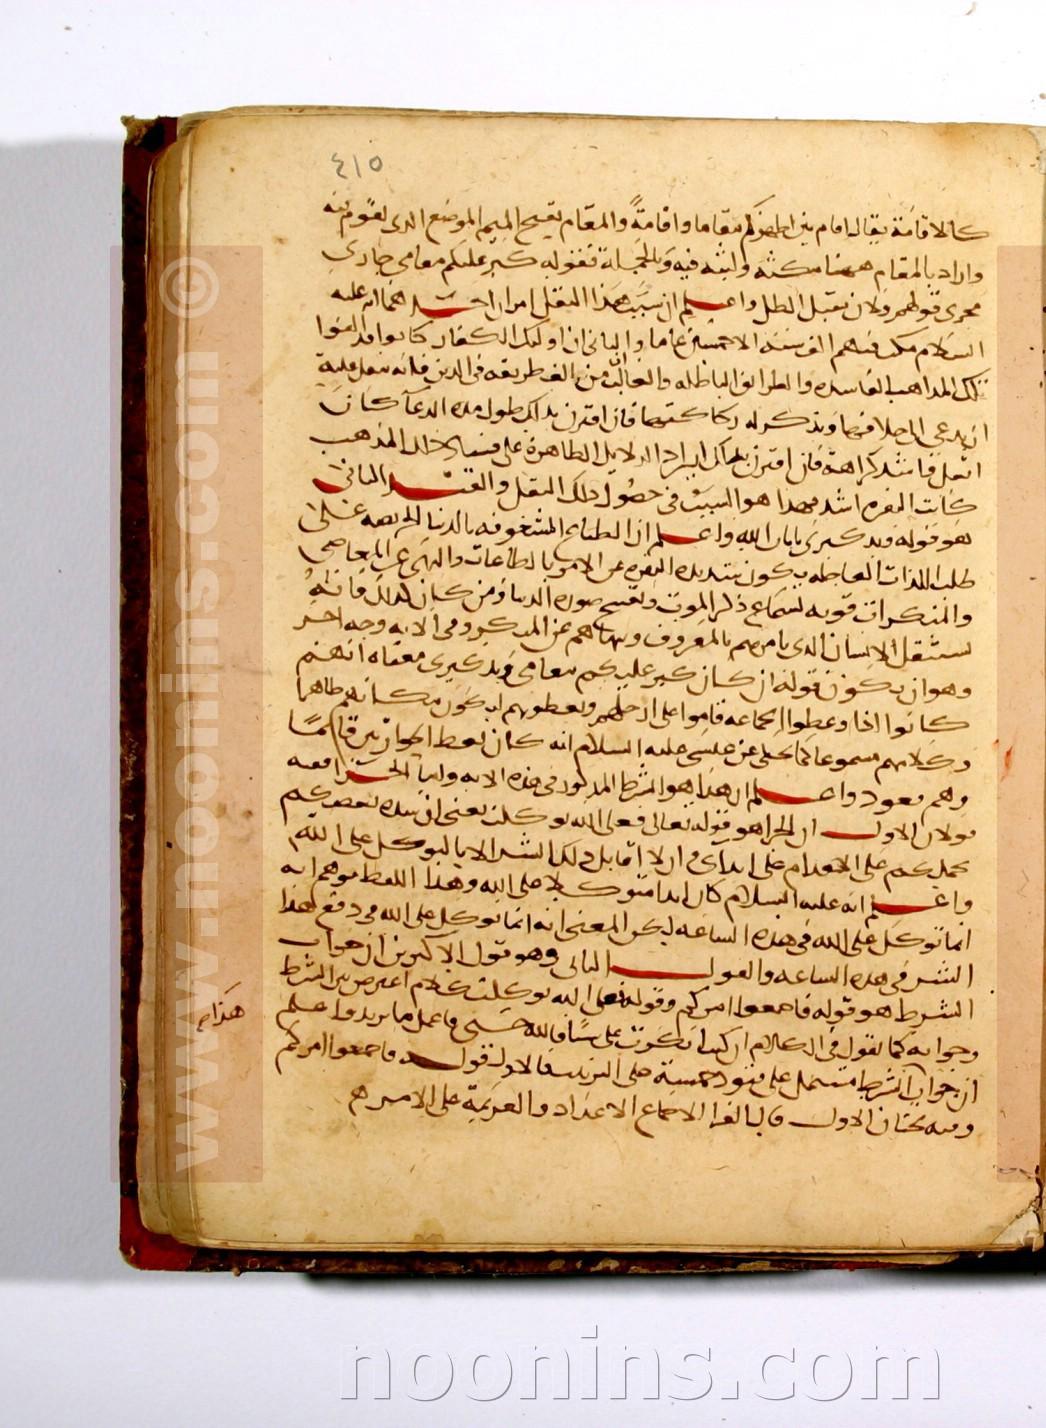 ٤١٥
كالاقامة يقال اقام بين اظهركم مقاما واقامة والمقام بفتح الميم الموضع الذى يقوم فيه
واراد بالمقام ههنا مكثه ولبثه فيه وبالجملة فقوله كبر عليكم مقامى جارى
مجرى قولهم فلان ثقيل الظل واعلم ان سبب هذا الثقل امران احدهما انه عليه
السلام مكث فيهم الف سنة الا خمسين عاما والثانى ان اوليك الكفار كانوا قد الفوا
تلك المذاهب الفاسدة والطرايق الباطلة والغالب من الف طريقة فى الدين فانه يثقل عليه
ان يدعى الى خلافها ويذكر له ركاكتها فان اقترن بذلك طول مدة الدعآ كان
اثقل واشد كراهة فان اقترن به ايراد الدلايل الظاهرة على فساد ذلك المذهب
كانت النفرة اشد فهذا هو السبب فى حصول ذلك الثقل والقيد الثانى
هو قوله وتذكيرى بايات الله واعلم ان الطباع المشغوفة بالدنيا الحريصة على
طلب اللذات العاجلة يكون شديدة النفرة عن الامر بالطاعات والنهى عن المعاصى
والمنكرات قوية لسماع ذكر الموت وتقبيح صورة الدنيا ومن كان كذلك فانه
يستثقل الانسان الذى يامرهم بالمعروف وينهاهم عن المنكر وفى الاية وجه اخر
وهو ان يكون قوله ان كان كبر عليكم مقامى وتذكيرى معناه انهم
كانوا اذا وعظوا الجماعة قاموا على ارجلهم ويعظونهم ليكون مكانهم ظاهرا
وكلامهم مسموعا كما يحكى عن عيسى عليه السلام انه كان يعظ الحواريين قايما
وهم قعود واعلم ان هذا هو الشرط المذكور فى هذه الاية واما الجزا ففيه
قولان الاول ان الجزا هو قوله تعالى فعلى الله توكلت يعنى ان شدة بغضكم
يحملكم على الاقدام على ايذآى وانا لا اقابل ذلك الشر الا بالتوكل على الله
واعلم انه عليه السلام كان ابدا متوكلا على الله وهذا اللفظ يوهم انه
انما توكل على الله فى هذه الساعة لكن المعنى انه انما توكل على الله فى دفع هذا
الشر فى هذه الساعة والقول الثانى وهو قول الاكثرين ان جواب
الشرط هو قوله فاجمعوا امركم وقوله فعلى الله توكلت كلام اعترض بين الشرط
وجوابه كما يقول فى الكلام ان كنت انكرت على شيا فالله حسبى فاعمل ما تريد واعلم
هكذا
ان جواب الشرط مشتمل على قيود خمسة على الترتيب فالاول قوله فاجمعوا امركم
وفيه بحثان الاول قال الفرا الاجماع الاعداد والعزيمة على الامر
www.noonins.com ©
noonins.com